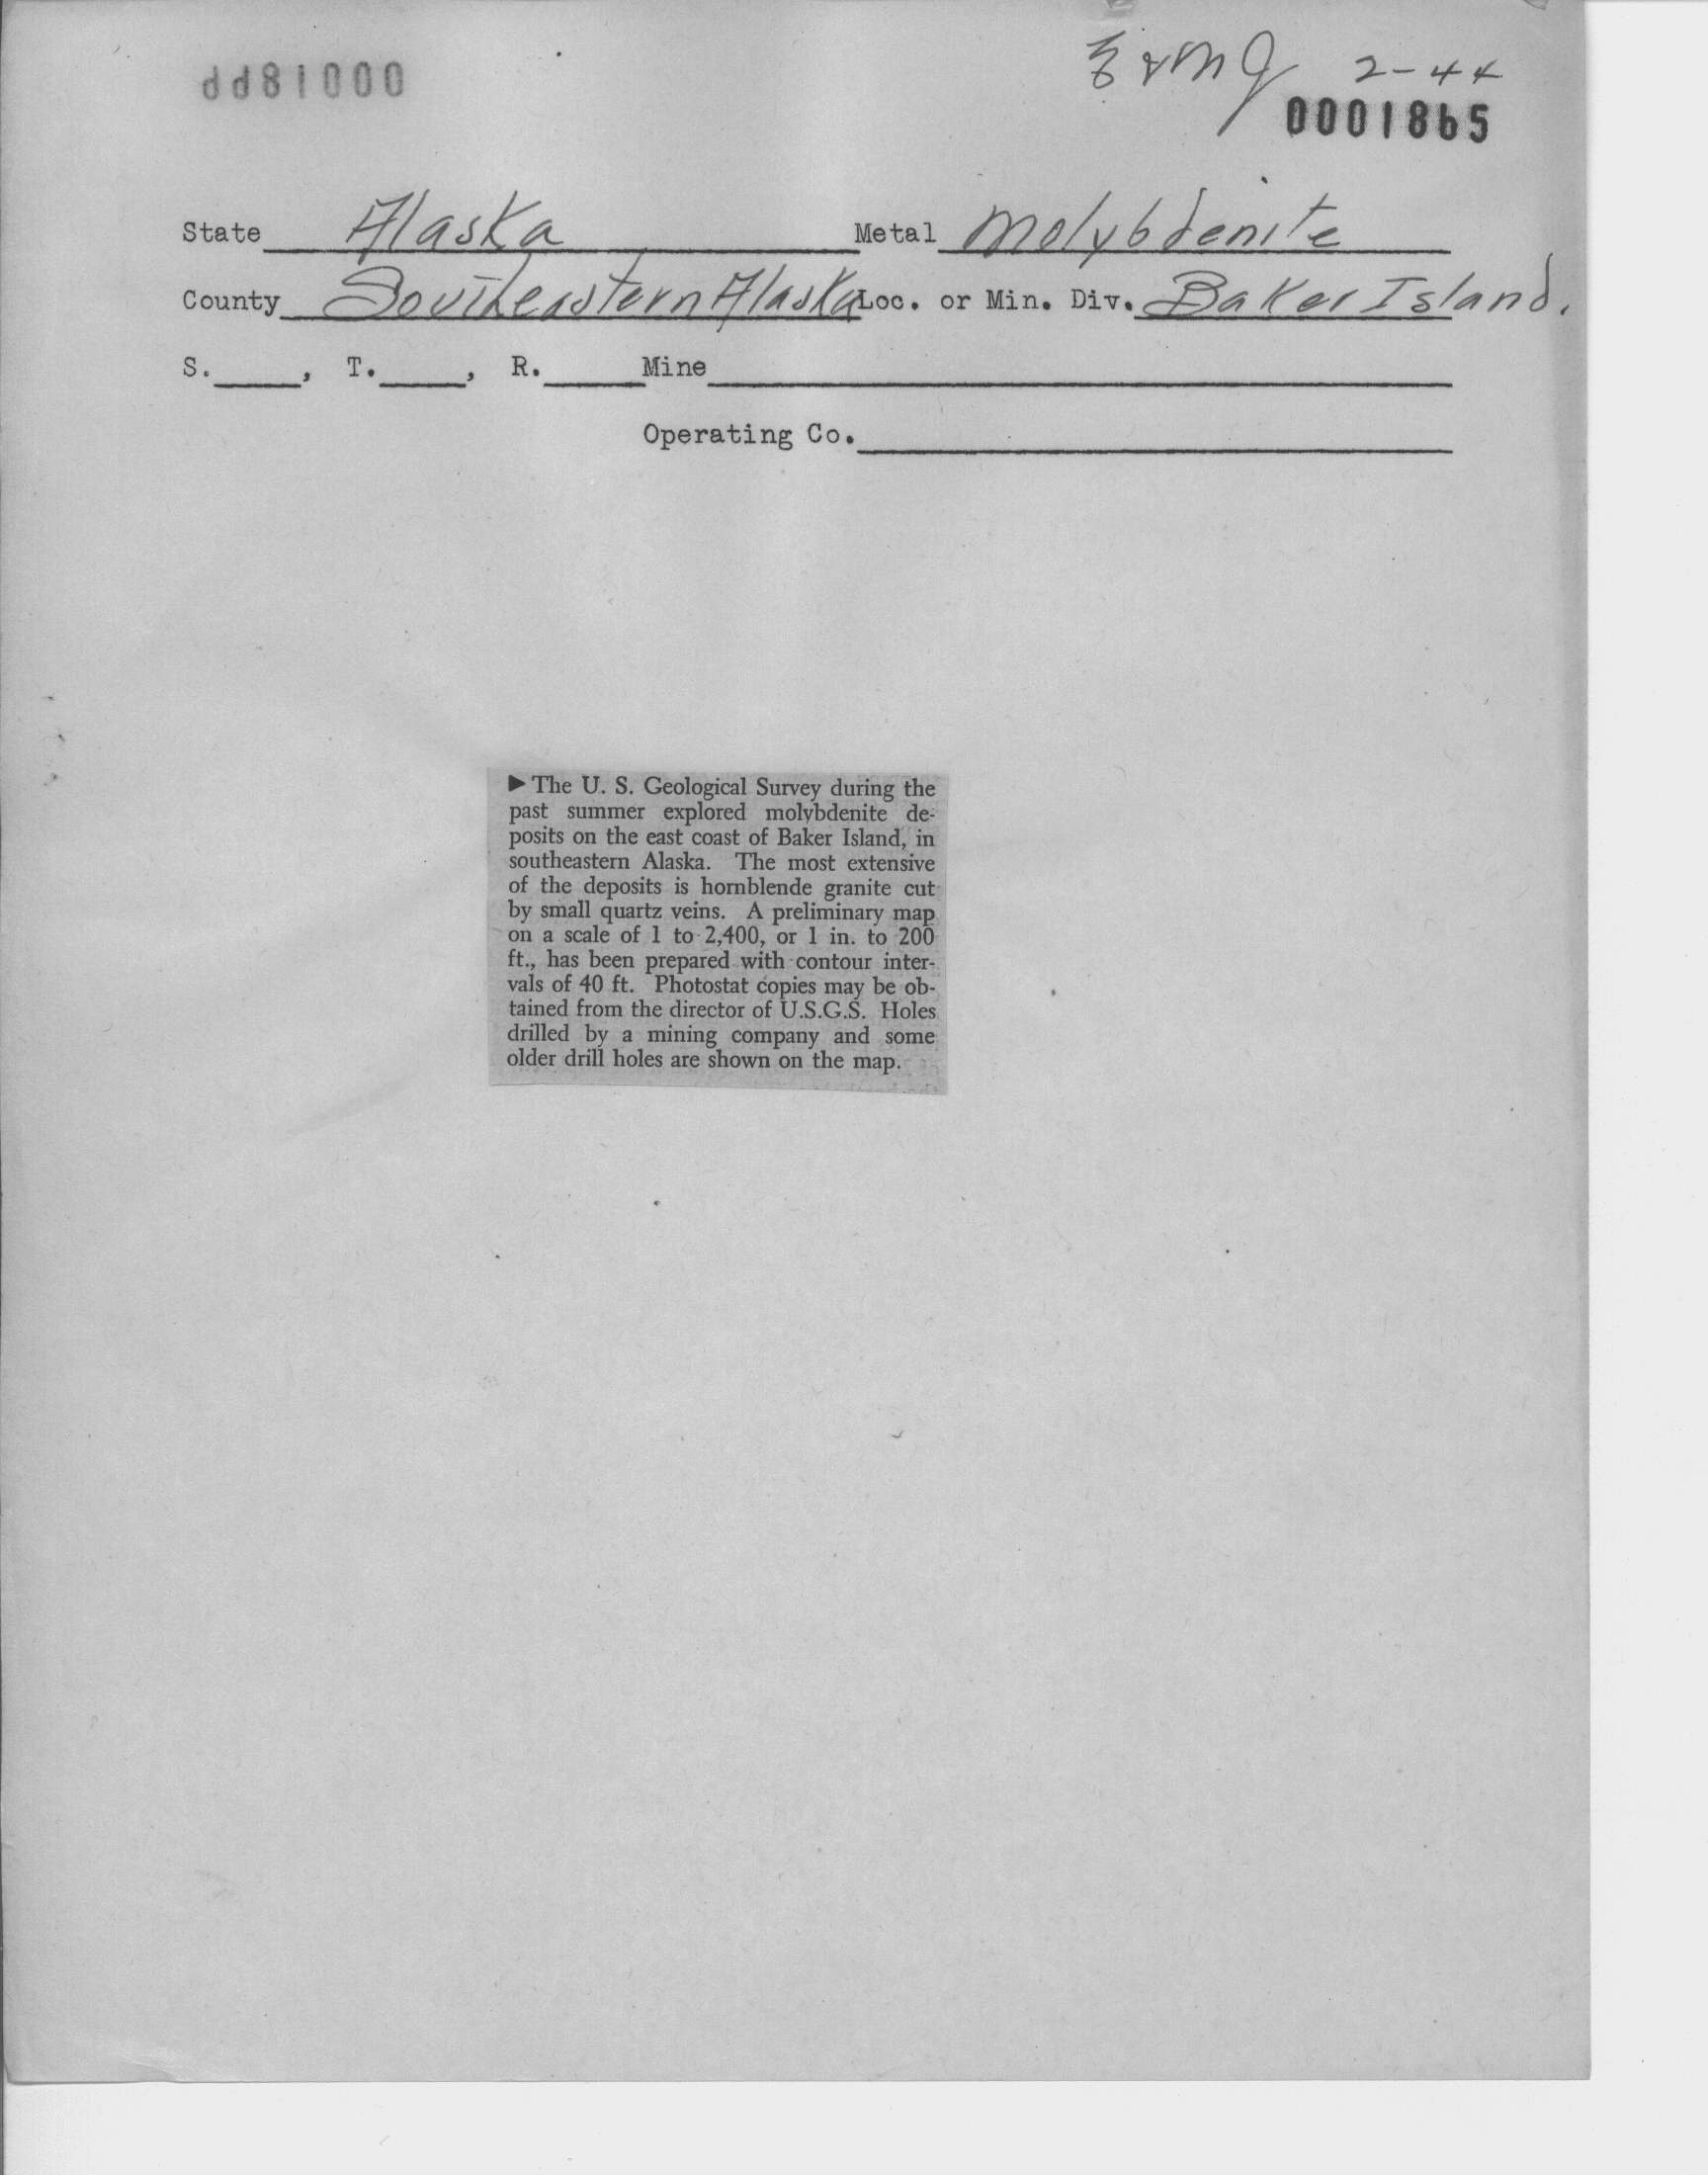 E & M J 2-44
0001865
State Alaska Metal Molybdenite
County Southeastern Alaska Loc. or Min. Div. Baker Island.
S. , T. , R. Mine
Operating Co.
▶ The U. S. Geological Survey during the
past summer explored molybdenite de-
posits on the east coast of Baker Island, in
southeastern Alaska. The most extensive
of the deposits is hornblende granite cut
by small quartz veins. A preliminary map
on a scale of 1 to 2,400, or 1 in. to 200
ft., has been prepared with contour inter-
vals of 40 ft. Photostat copies may be ob-
tained from the director of U.S.G.S. Holes
drilled by a mining company and some
older drill holes are shown on the map.